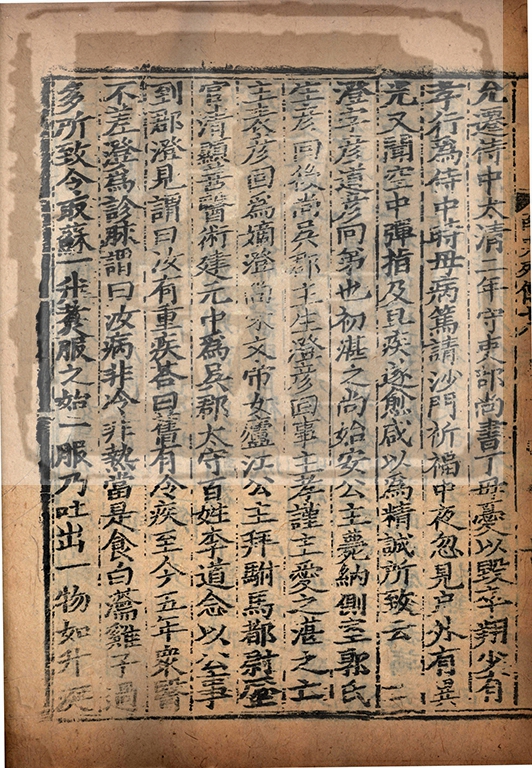 允遷侍中太清二年守吏部尚書丁母憂以毀卒翔少有
孝行為侍中時母病篤請沙門祈福中夜忽見户外有異
光又聞空中彈指及旦疾遂愈咸以為精誠所致云
澄字彦道彦回弟也初湛之尚始安公主薨納側室郭氏
生彦回後尚吳郡主生澄彦回事主孝謹主愛之湛之亡
主表彦回為嫡澄尚宋文帝女廬江公主拜駙馬都尉歷
官清顯善醫術建元中為吳郡太守百姓李道念以公事
到郡澄見謂曰汝有重疾荅曰舊有冷疾至今五年衆醫
不差澄為診脉謂曰汝病非冷非熱當是食白瀹雞子過
多所致令取蘇一升煑服之始一服乃吐出一物如升涎